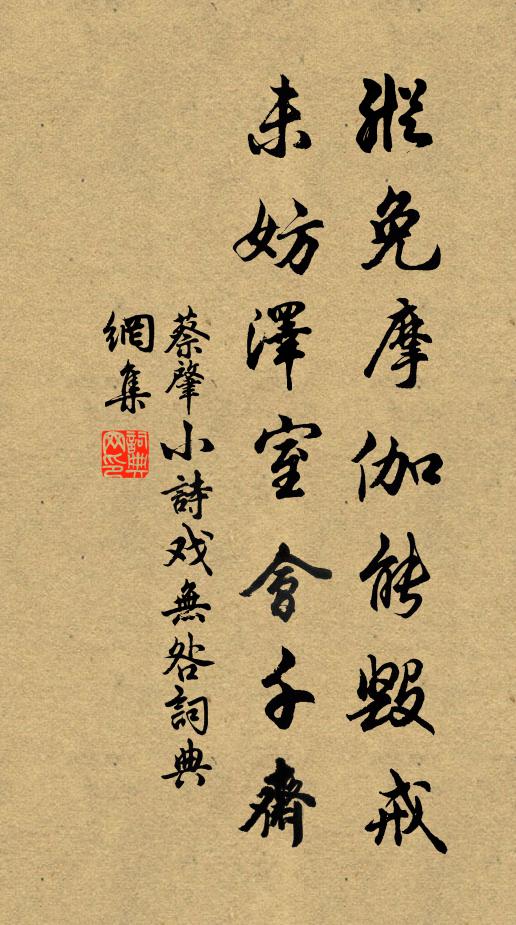 縱免摩伽能毀戒
未妨澤室會千齋
蔡肇小詩戏無咎詞典
網集
詞典網印